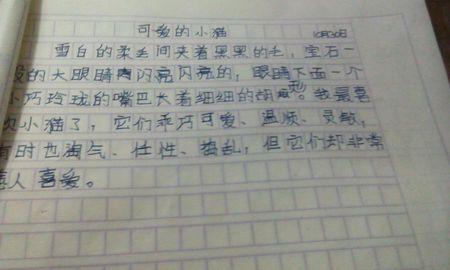 可爱的小猫 10月30日
雪白的柔毛间夹着黑黑的毛，宝石一
般的大眼睛闪亮闪亮的，眼睛下面一个
小巧玲珑的嘴巴长着细细的胡。我最喜
欢小猫了，它们乖巧可爱、温顺、灵敏，
有时也淘气、任性、捣乱，但它们却非常
惹人喜爱。